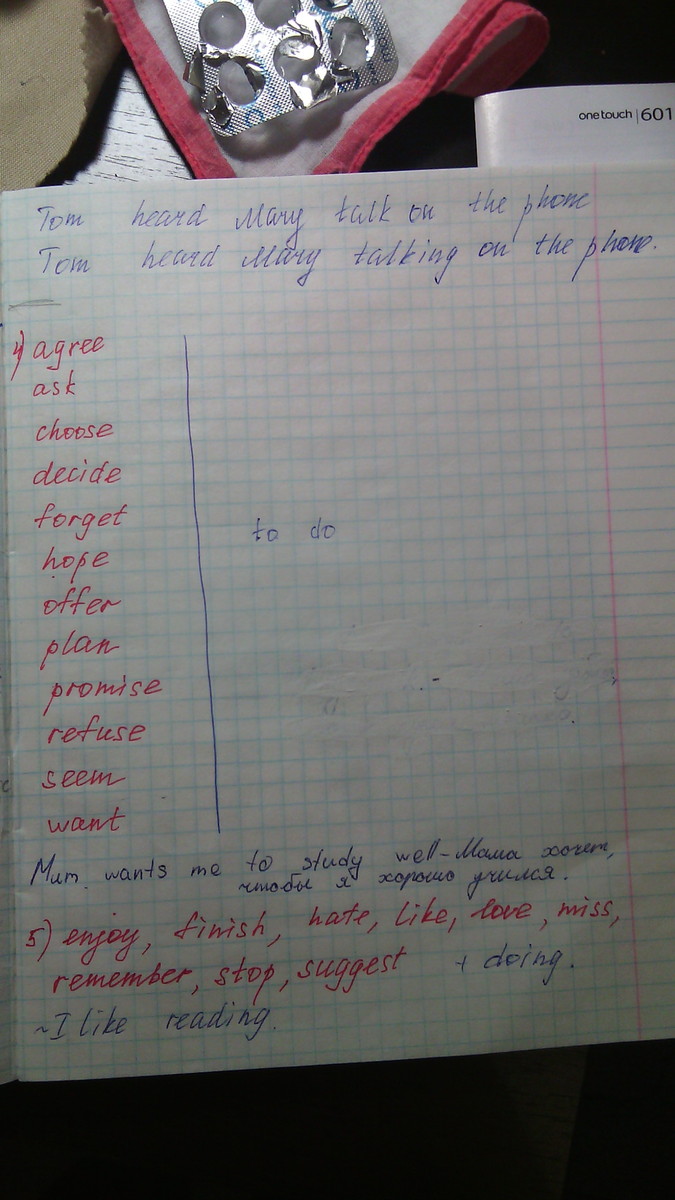 onetouch | 601
Tom heard Mary talk on the phone
Tom heard Mary talking on the phone.
4) agree
ask
choose
decide
forget
to do
hope
offer
plan
promise
refuse
seem
want
Mum wants me to study well - Мама хочет,
чтобы я хорошо учился.
5) enjoy, finish, hate, like, love, miss,
remember, stop, suggest + doing.
~ I like reading.